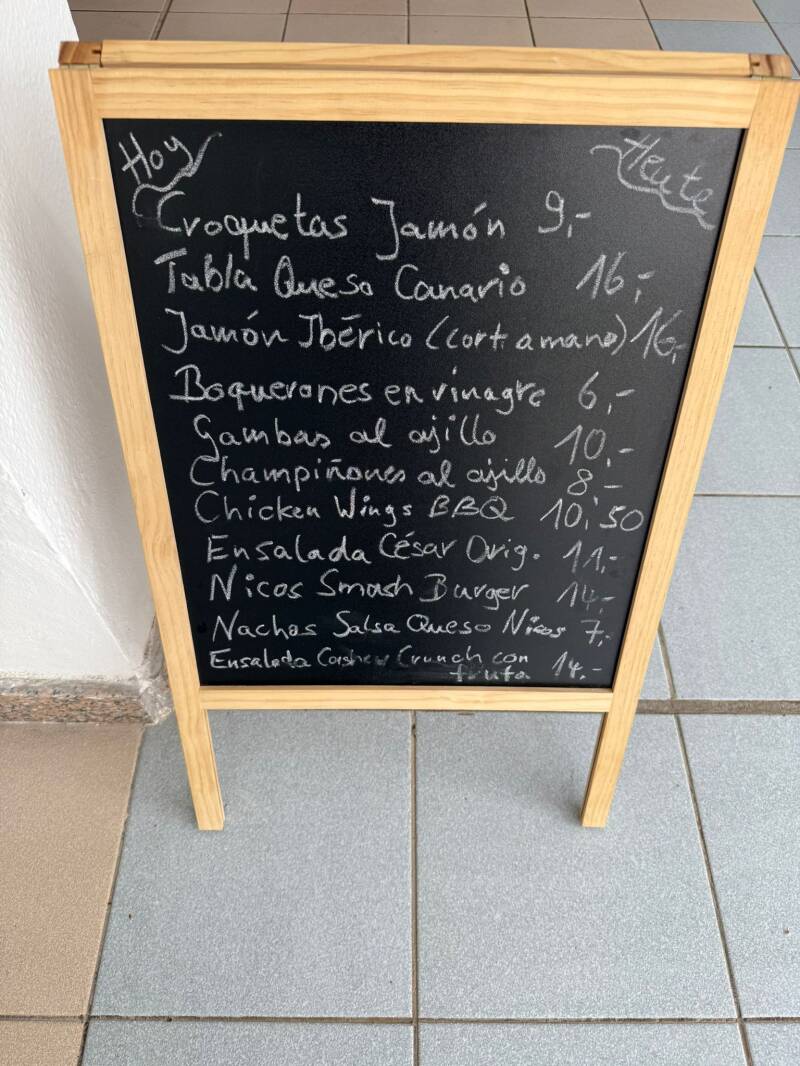 Hoy Heute
Croquetas Jamón 9,-
Tabla Queso Canario 16,-
Jamón Ibérico (cort a mano) 16,-
Boquerones en vinagre 6,-
Gambas al ajillo 10,-
Champiñones al ajillo 8,-
Chicken Wings BBQ 10,50
Ensalada César Orig. 11,-
Nicos Smash Burger 14,-
Nachos Salsa Queso Nicos 7,-
Ensalada Cashew Crunch con 14,-
fruta